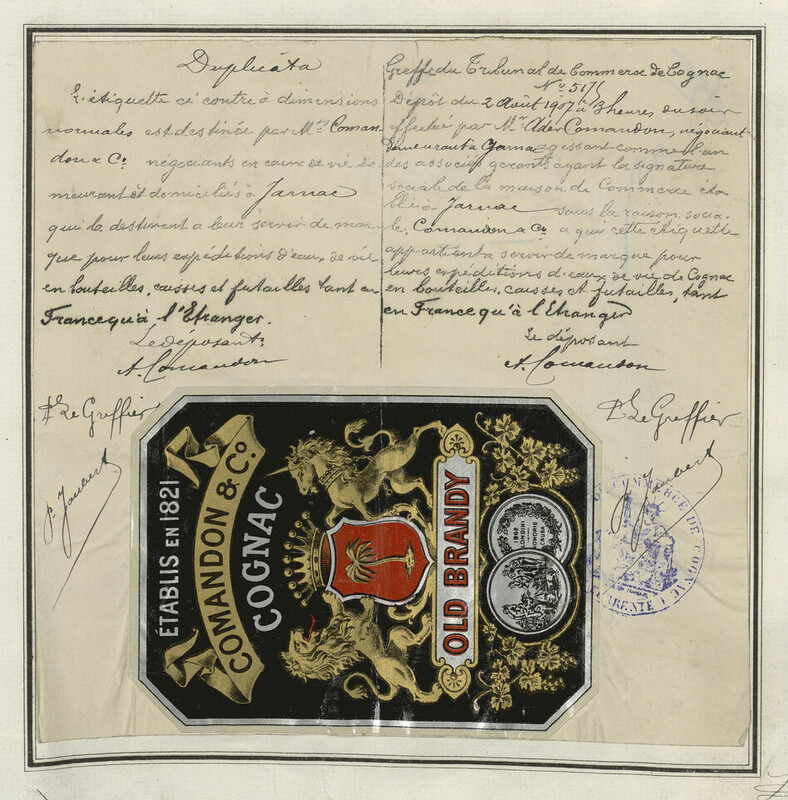 Duplicata
L'étiquette ci contre à dimensions
normales est destinée par Mrs Coman
don & Co négociants en eaux de vie de
meurant et domiciliés à Jarnac
qui la destinent a leur servir de mar
que pour leurs expéditions d'eaux de vie
en bouteilles, caisses et futailles tant en
France qu'à l'Etranger.
Le déposant:
A. Comandon
Le Greffier
P. Joubert
Greffe du Tribunal de Commerce de Cognac
No 5175
Dépôt du 2 Août 1907 à 3 heures du soir
effectué par Mr Adér Comandon, négociant
demeurant à Jarnac agissant comme l'un
des associés gerants ayant la signature
sociale de la maison de Commerce éta
blie à Jarnac sous la raison socia
le Comandon & Co a qui cette étiquette
appartient a servir de marque pour
leurs expéditions d'eaux de vie de Cognac
en bouteilles, caisses et futailles, tant
en France qu'à l'Etranger
Le déposant
A. Comandon
Le Greffier
P. Joubert
ÉTABLIS EN 1821
COMANDON & Co.
COGNAC
OLD BRANDY
1862
LONDINI
HONORIS
CAUSA
COMMERCE DE COGNAC
CHARENTE